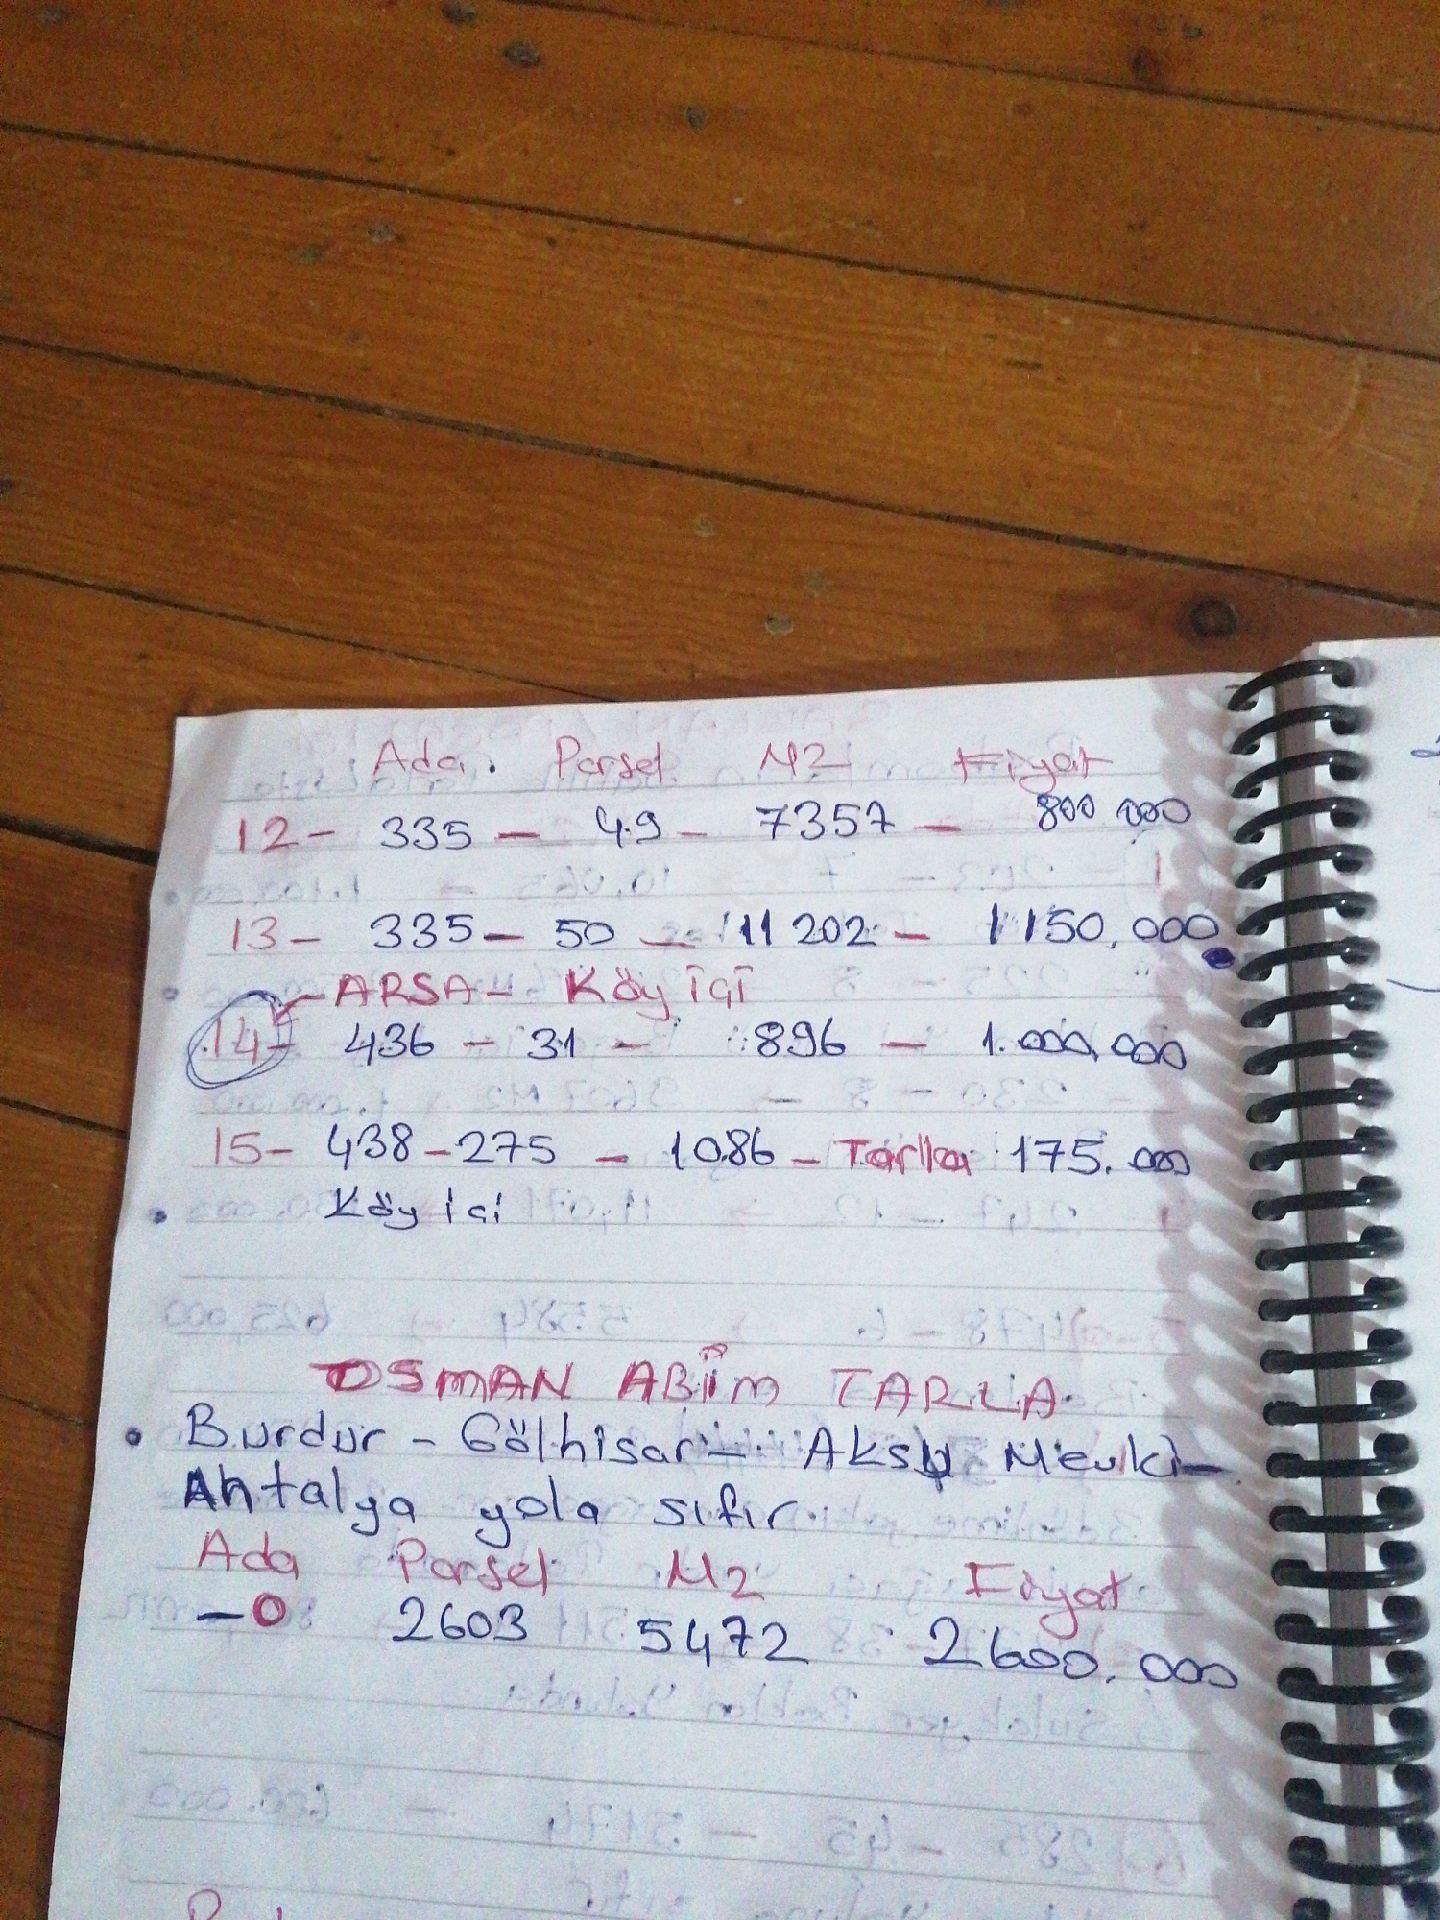 Ada. Parsel M2 Fiyat
12 - 335 - 49 - 7357 - 800 000
13 - 335 - 50 - 11 202 - 1 150.000
ARSA - Köy içi
14 - 436 - 31 - 896 - 1.000.000
15 - 438 - 275 - 1086 - Tarla 175.000
• Köy içi
OSMAN ABİM TARLA
• Burdur - Gölhisar - Aksu Mevki -
Antalya yola sıfır.
Ada Parsel M2 Fiyat
- 0 2603 5472 2600.000